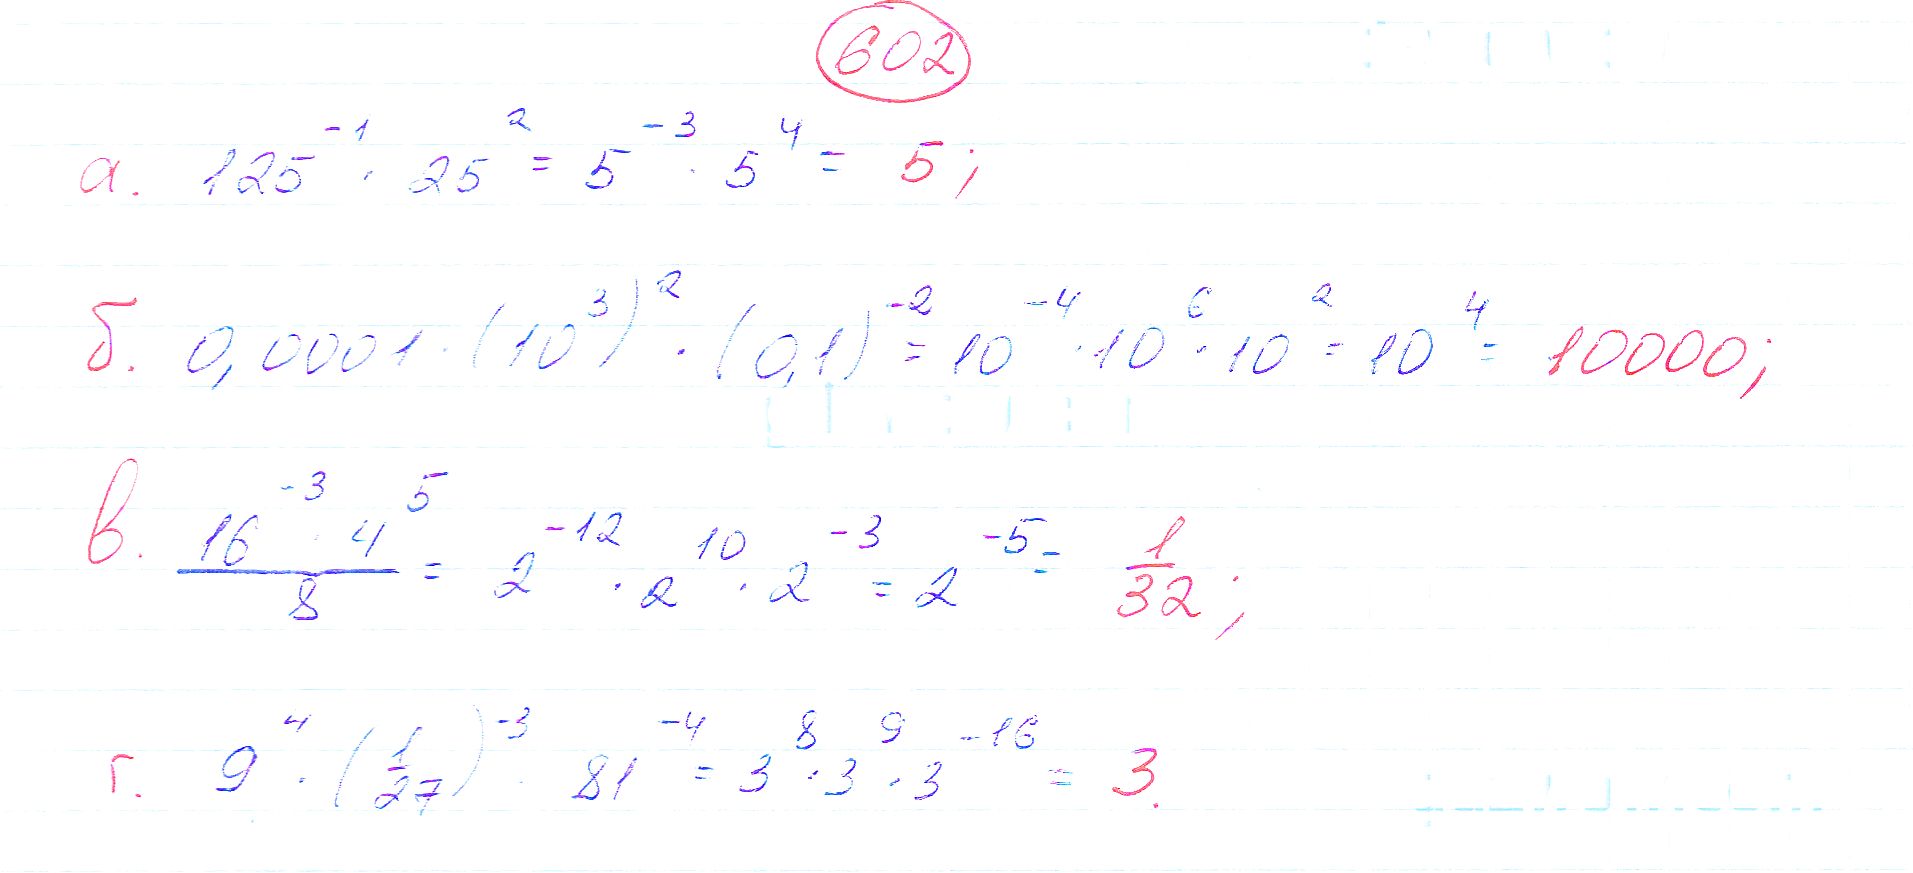 602
а. 125⁻¹ · 25² = 5⁻³ · 5⁴ = 5;
б. 0,0001 · (10³)² · (0,1)⁻² = 10⁻⁴ · 10⁶ · 10² = 10⁴ = 10000;
в. (16⁻³ · 4⁵)/8 = 2⁻¹² · 2¹⁰ · 2⁻³ = 2⁻⁵ = 1/32;
г. 9⁴ · (1/27)⁻³ · 81⁻⁴ = 3⁸ · 3⁹ · 3⁻¹⁶ = 3.